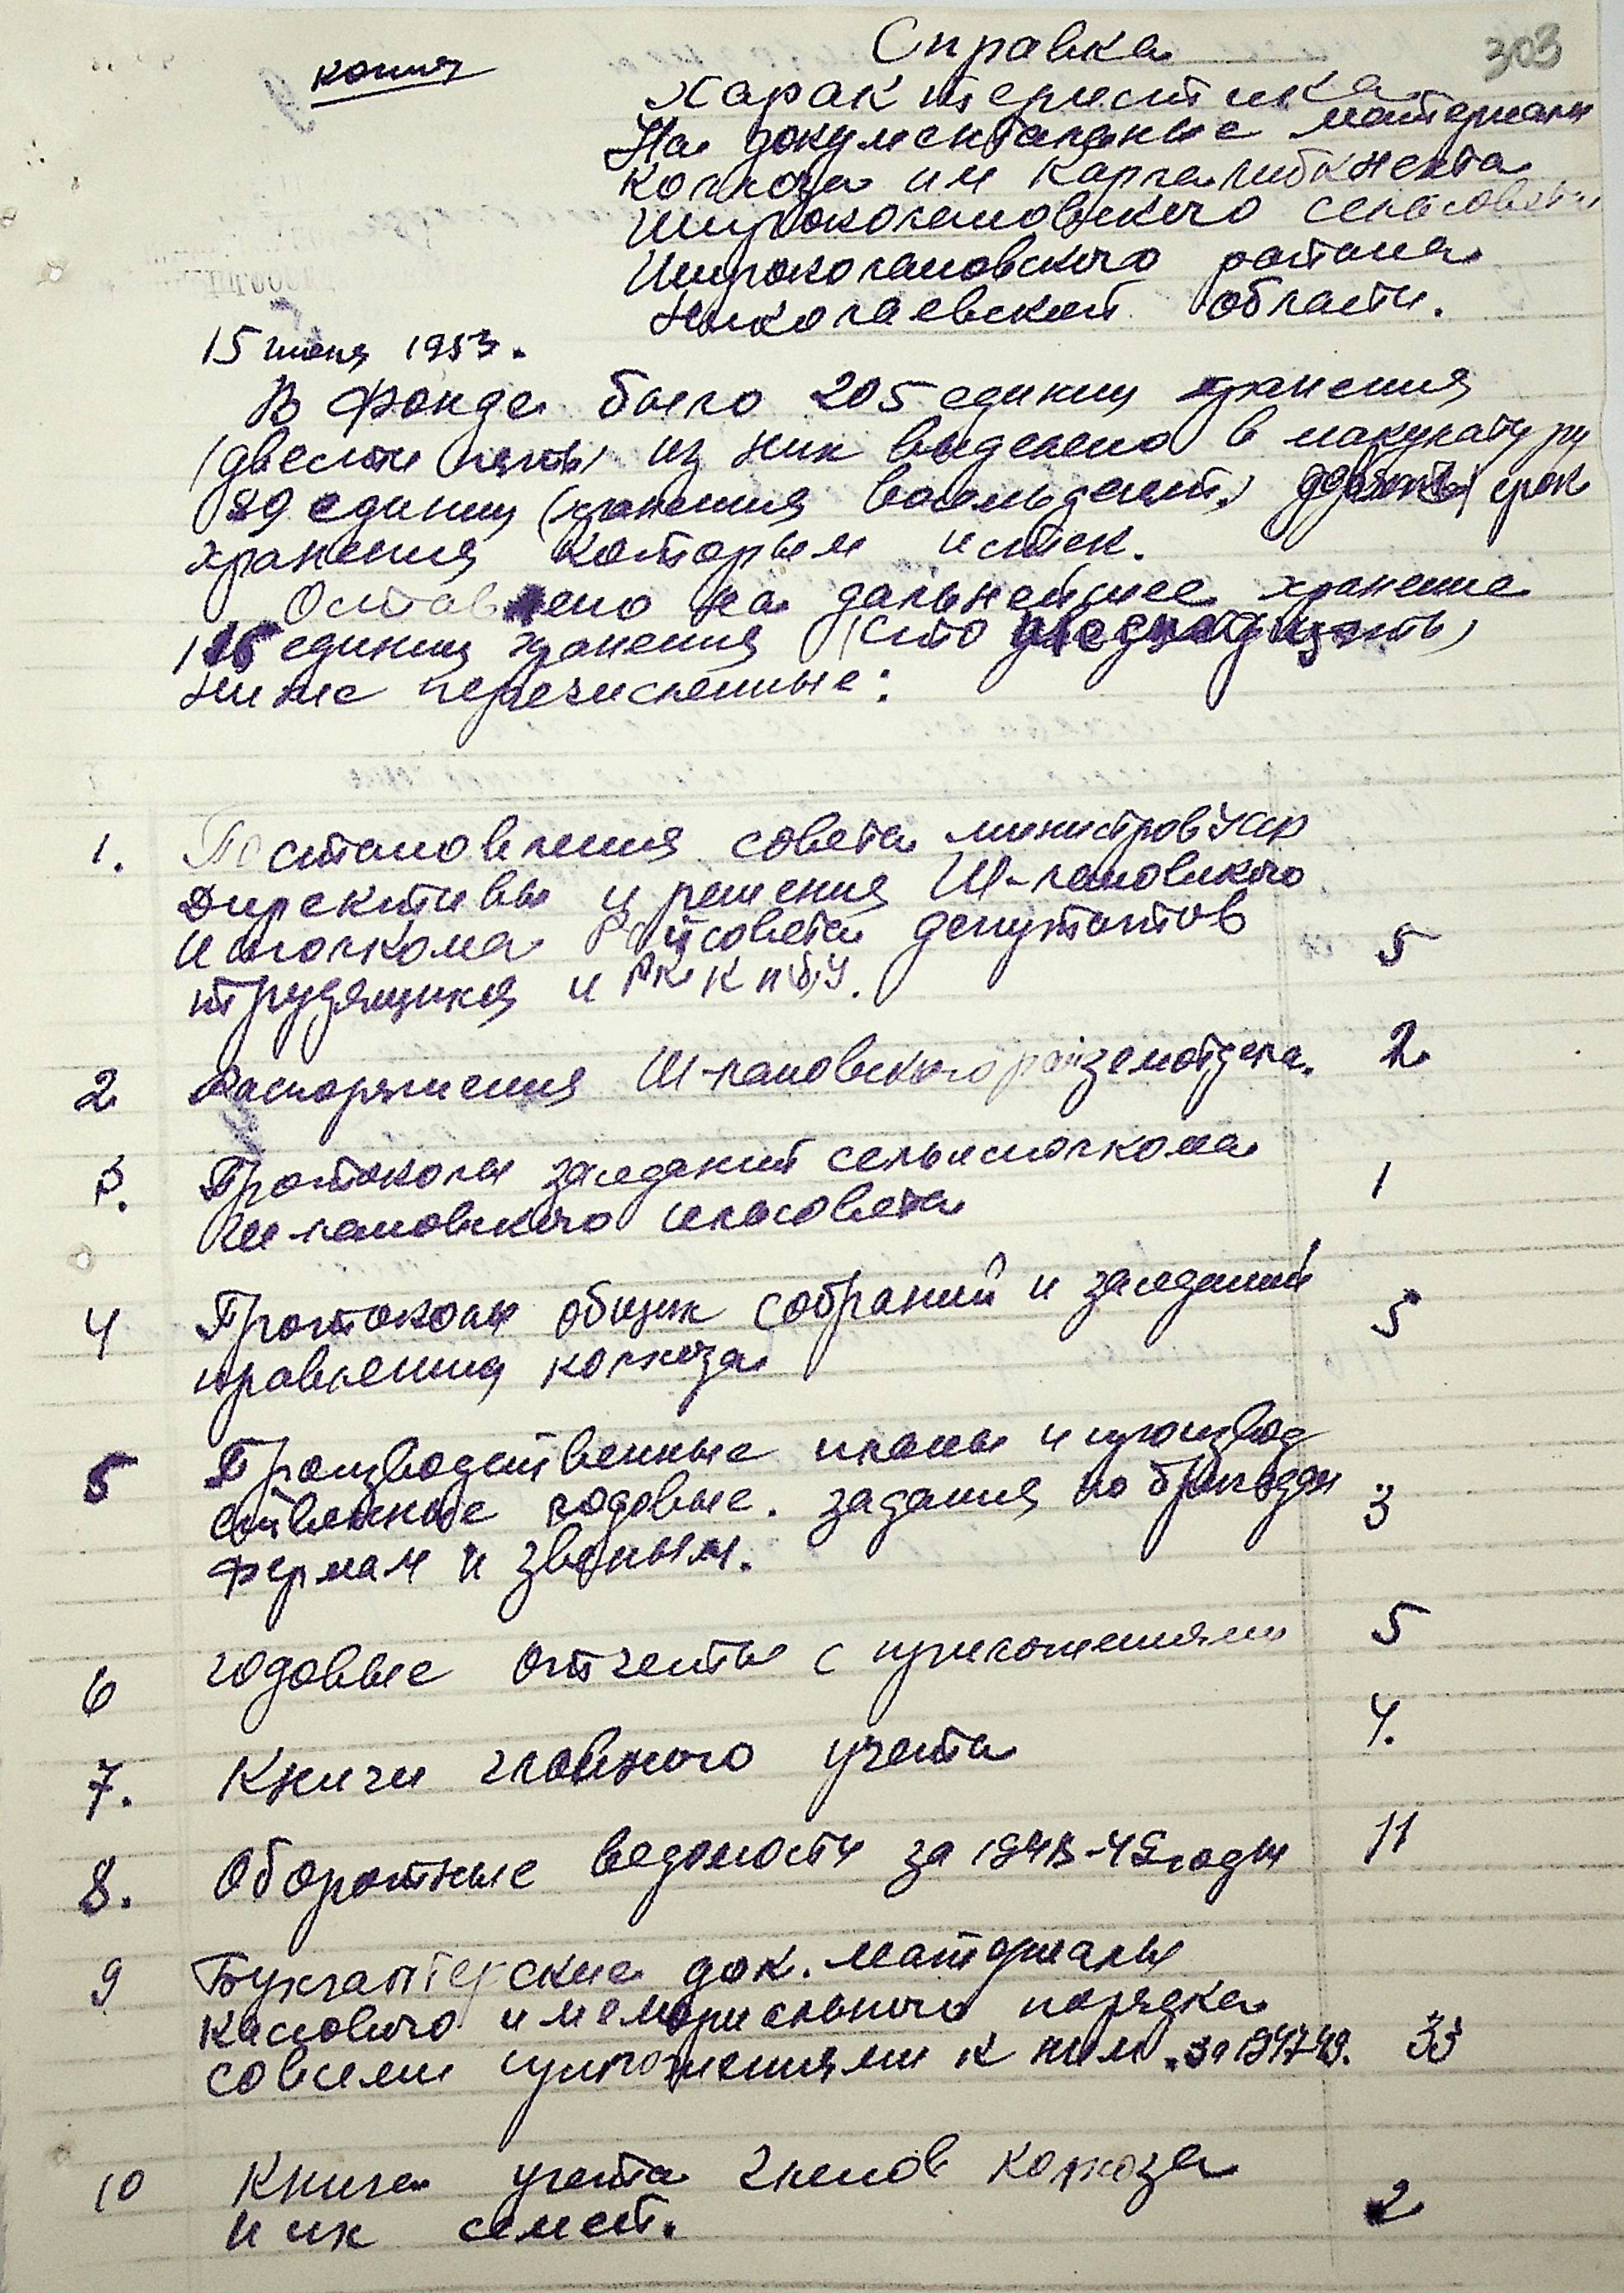 303
Справка
копия
характеристика
На документальные материалы
колхоза им Карла Либкнехта
Широколановского сельсовета
Широколановского района
Николаевской области.
15 июня 1953.
В фонде было 205 единиц хранения
(двести пять) из них выделено в макулатуру
89 единиц (хранения восемьдесят) срок
хранения которым истек.
Оставлено на дальнейшее хранение
единиц хранения (сто
ниже перечисленные:
1. Постановления совета министров УССР
Директивы и решения Ш-лановского
исполкома Райсовета депутатов
трудящихся и РК КП(б)У. 5
2 Распоряжения Ш-лановского райземотдела. 2
3. Протоколы заседаний сельисполкома
Ш-лановского сельсовета 1
4 Протоколы общих собраний и заседаний
правления колхоза 5
5 Производственные планы и производ
ственные годовые. задания по бригадам
фермам и звеньям. 3
6 годовые отчеты с приложениями 5
7. Книги главного учета 4.
8. Оборотные ведомости за 1948-49 годы 11
9 Бухгалтерские док. материалы
кассового и мемориального порядка
со всеми приложениями к ним. за 1947-49. 33
10 Книга учета членов колхоза
и их семей. 2